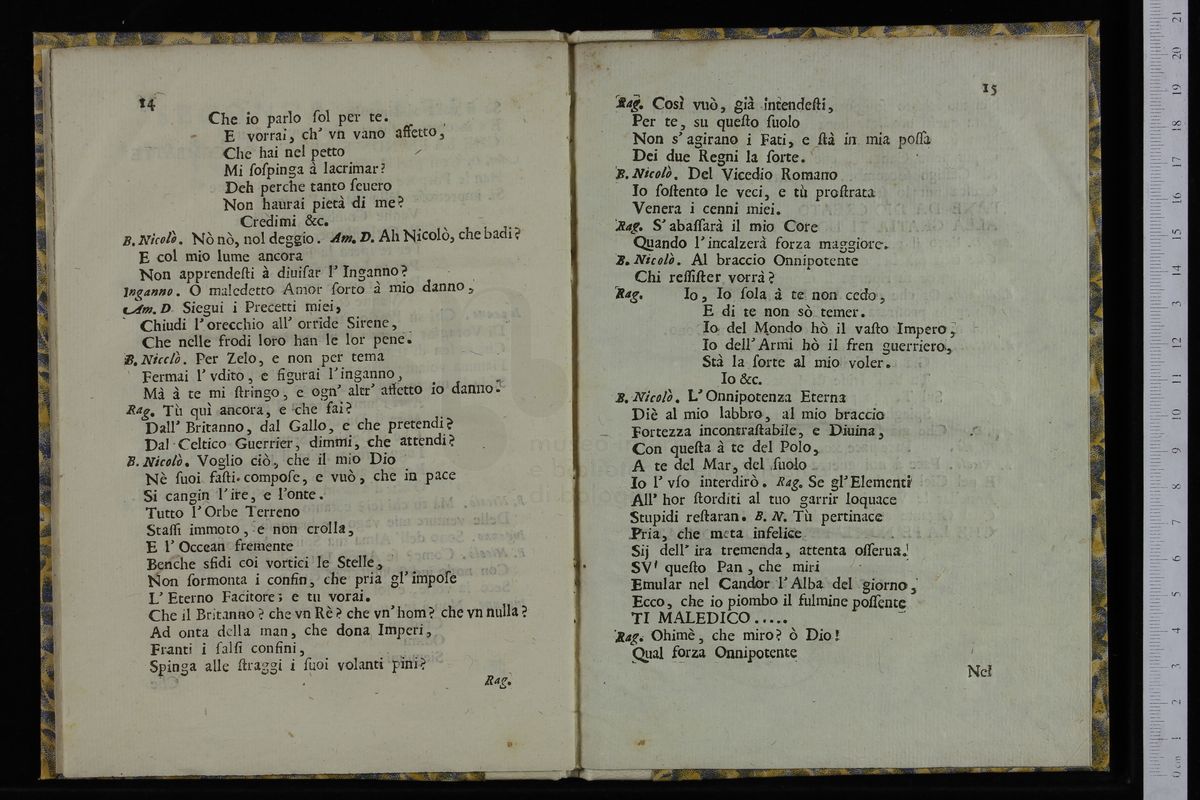 14
Che io parlo ſol per te.
E vorrai, ch' vn vano affetto,
Che hai nel petto
Mi ſoſpinga à lacrimar?
Deh perche tanto ſeuero
Non haurai pietà di me?
Credimi &c.
B. Nicolò. Nò nò, nol deggio. Am. D. Ah Nicolò, che badi?
E col mio lume ancora
Non apprendeſti à diuiſar l' Inganno?
Inganno. O maledetto Amor ſorto à mio danno,
Am. D Siegui i Precetti miei,
Chiudi l' orecchio all' orride Sirene,
Che nelle frodi loro han le lor pene.
B. Nicolò. Per Zelo, e non per tema
Fermai l' vdito, e figurai l' inganno,
Mà à te mi ſtringo, e ogn' altr' affetto io danno.
Rag. Tù quì ancora, e che fai?
Dall' Britanno, dal Gallo, e che pretendi?
Dal Celtico Guerrier, dimmi, che attendi?
B. Nicolò. Voglio ciò, che il mio Dio
Nè ſuoi faſti compoſe, e vuò, che in pace
Si cangin l' ire, e l' onte.
Tutto l' Orbe Terreno
Staſſi immoto, e non crolla,
E l' Occean fremente
Benche sfidi coi vortici le Stelle,
Non ſormonta i confin, che pria gl' impoſe
L' Eterno Facitore; e tu vorai.
Che il Britanno? che vn Rè? che vn' hom? che vn nulla?
Ad onta della man, che dona Imperi,
Franti i ſalſi confini,
Spinga alle ſtraggi i ſuoi volanti pini?
Rag.
15
Rag. Così vuò, già intendeſti,
Per te, su queſto ſuolo
Non s' agirano i Fati, e ſtà in mia poſſa
Dei due Regni la ſorte.
B. Nicolò. Del Vicedio Romano
Io ſoſtento le veci, e tù proſtrata
Venera i cenni miei.
Rag. S' abaſſarà il mio Core
Quando l' incalzerà forza maggiore.
B. Nicolò. Al braccio Onnipotente
Chi reſſiſter vorrà?
Rag. Io, Io ſola à te non cedo,
E di te non sò temer.
Io del Mondo hò il vaſto Impero,
Io dell' Armi hò il fren guerriero,
Stà la ſorte al mio voler.
Io &c.
B. Nicolò. L' Onnipotenza Eterna
Diè al mio labbro, al mio braccio
Fortezza incontraſtabile, e Diuina,
Con queſta à te del Polo,
A te del Mar, del ſuolo
Io l' vſo interdirò. Rag. Se gl' Elementi
All' hor ſtorditi al tuo garrir loquace
Stupidi reſtaran. B. N. Tù pertinace
Pria, che meta infelice
Sij dell' ira tremenda, attenta oſſerua.
SV' queſto Pan, che miri
Emular nel Candor l' Alba del giorno,
Ecco, che io piombo il fulmine poſſente
TI MALEDICO.....
Rag. Ohimè, che miro? ò Dio!
Qual forza Onnipotente
Nel